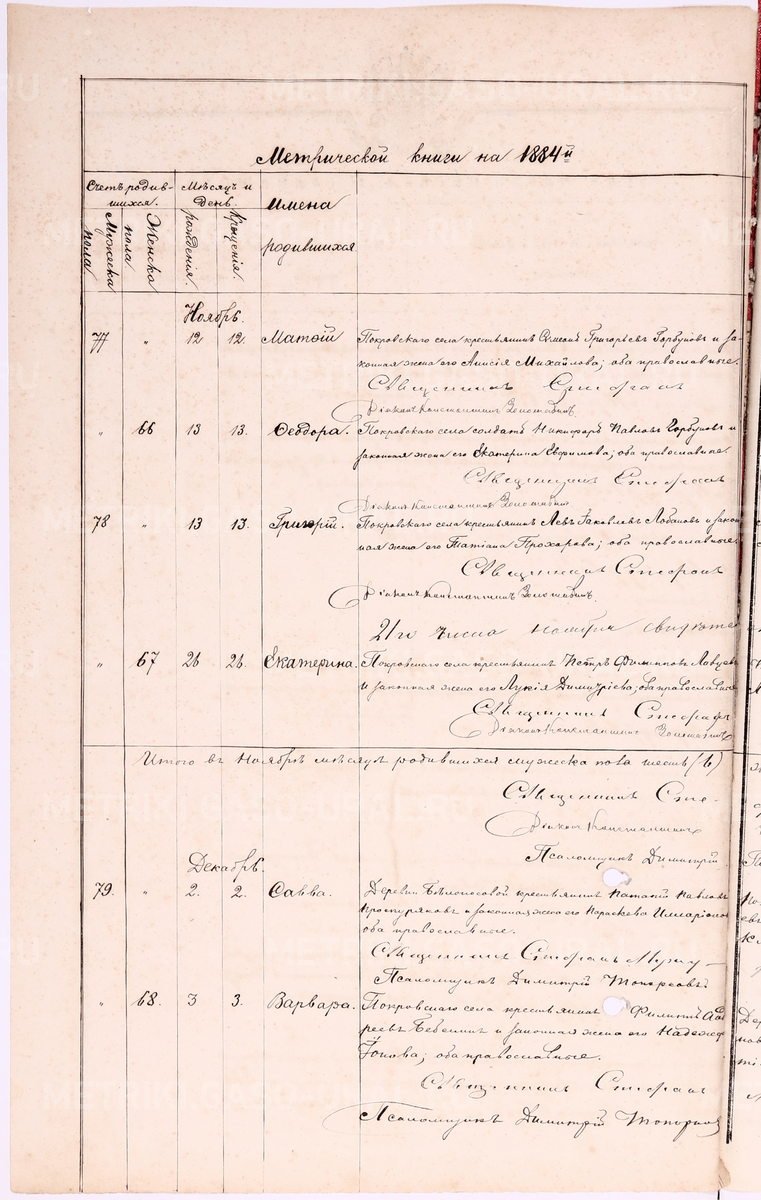 Метрической книги на 1884й
Счетъ родив-
шихся.
Мѣсяцъ и
День.
Имена
родившихся
Мужеска
пола
Женска
пола
рожденія.
Крещенія.
Ноябрь.
77 " 12 12. Матѳій Покровскаго села крестьянинъ Симеонъ Григорьевъ Горбуновъ и за-
конная жена его Анисія Михайлова; оба православные.
Священникъ Стефанъ
Діаконъ Константинъ
" 66 13 13. Ѳеодора. Покровскаго села солдатъ Никифоръ Павловъ Горбуновъ и
законная жена его Екатерина Евфимова; оба православные
Священникъ Стефанъ
Діаконъ Константинъ
78 " 13 13. Григорій. Покровскаго села крестьянинъ Левъ Іаковлевъ Лобановъ и закон
ная жена его Татіана Прохорова; оба православные
Священникъ Стефанъ
Діаконъ Константинъ
21го числа ноября
" 67 26 26. Екатерина. Покровскаго села крестьянинъ Петръ Филиппов
и законная жена его Лукія Димитріева; оба православные
Священникъ Стефанъ
Діаконъ Константинъ
Итого въ Ноябрѣ мѣсяцѣ родившихся мужеска пола шесть (6)
Священникъ Сте-
Діаконъ Константинъ
Псаломщикъ Димитрій
Декабрь.
79. " 2. 2. Савва. Деревни Бѣлоносовой крестьянинъ Павловъ
Проскуряковъ и законная жена его Параскева Иларіонов
оба православные.
Священникъ Стефанъ
Псаломщикъ Димитрій Топорковъ
" 68. 3 3. Варвара. Покровскаго села крестьянинъ Филиппъ Анд
реевъ Бабкинъ и законная жена его Надежд
Іонова; оба православные.
Священникъ Стефанъ
Псаломщикъ Димитрій Топорков